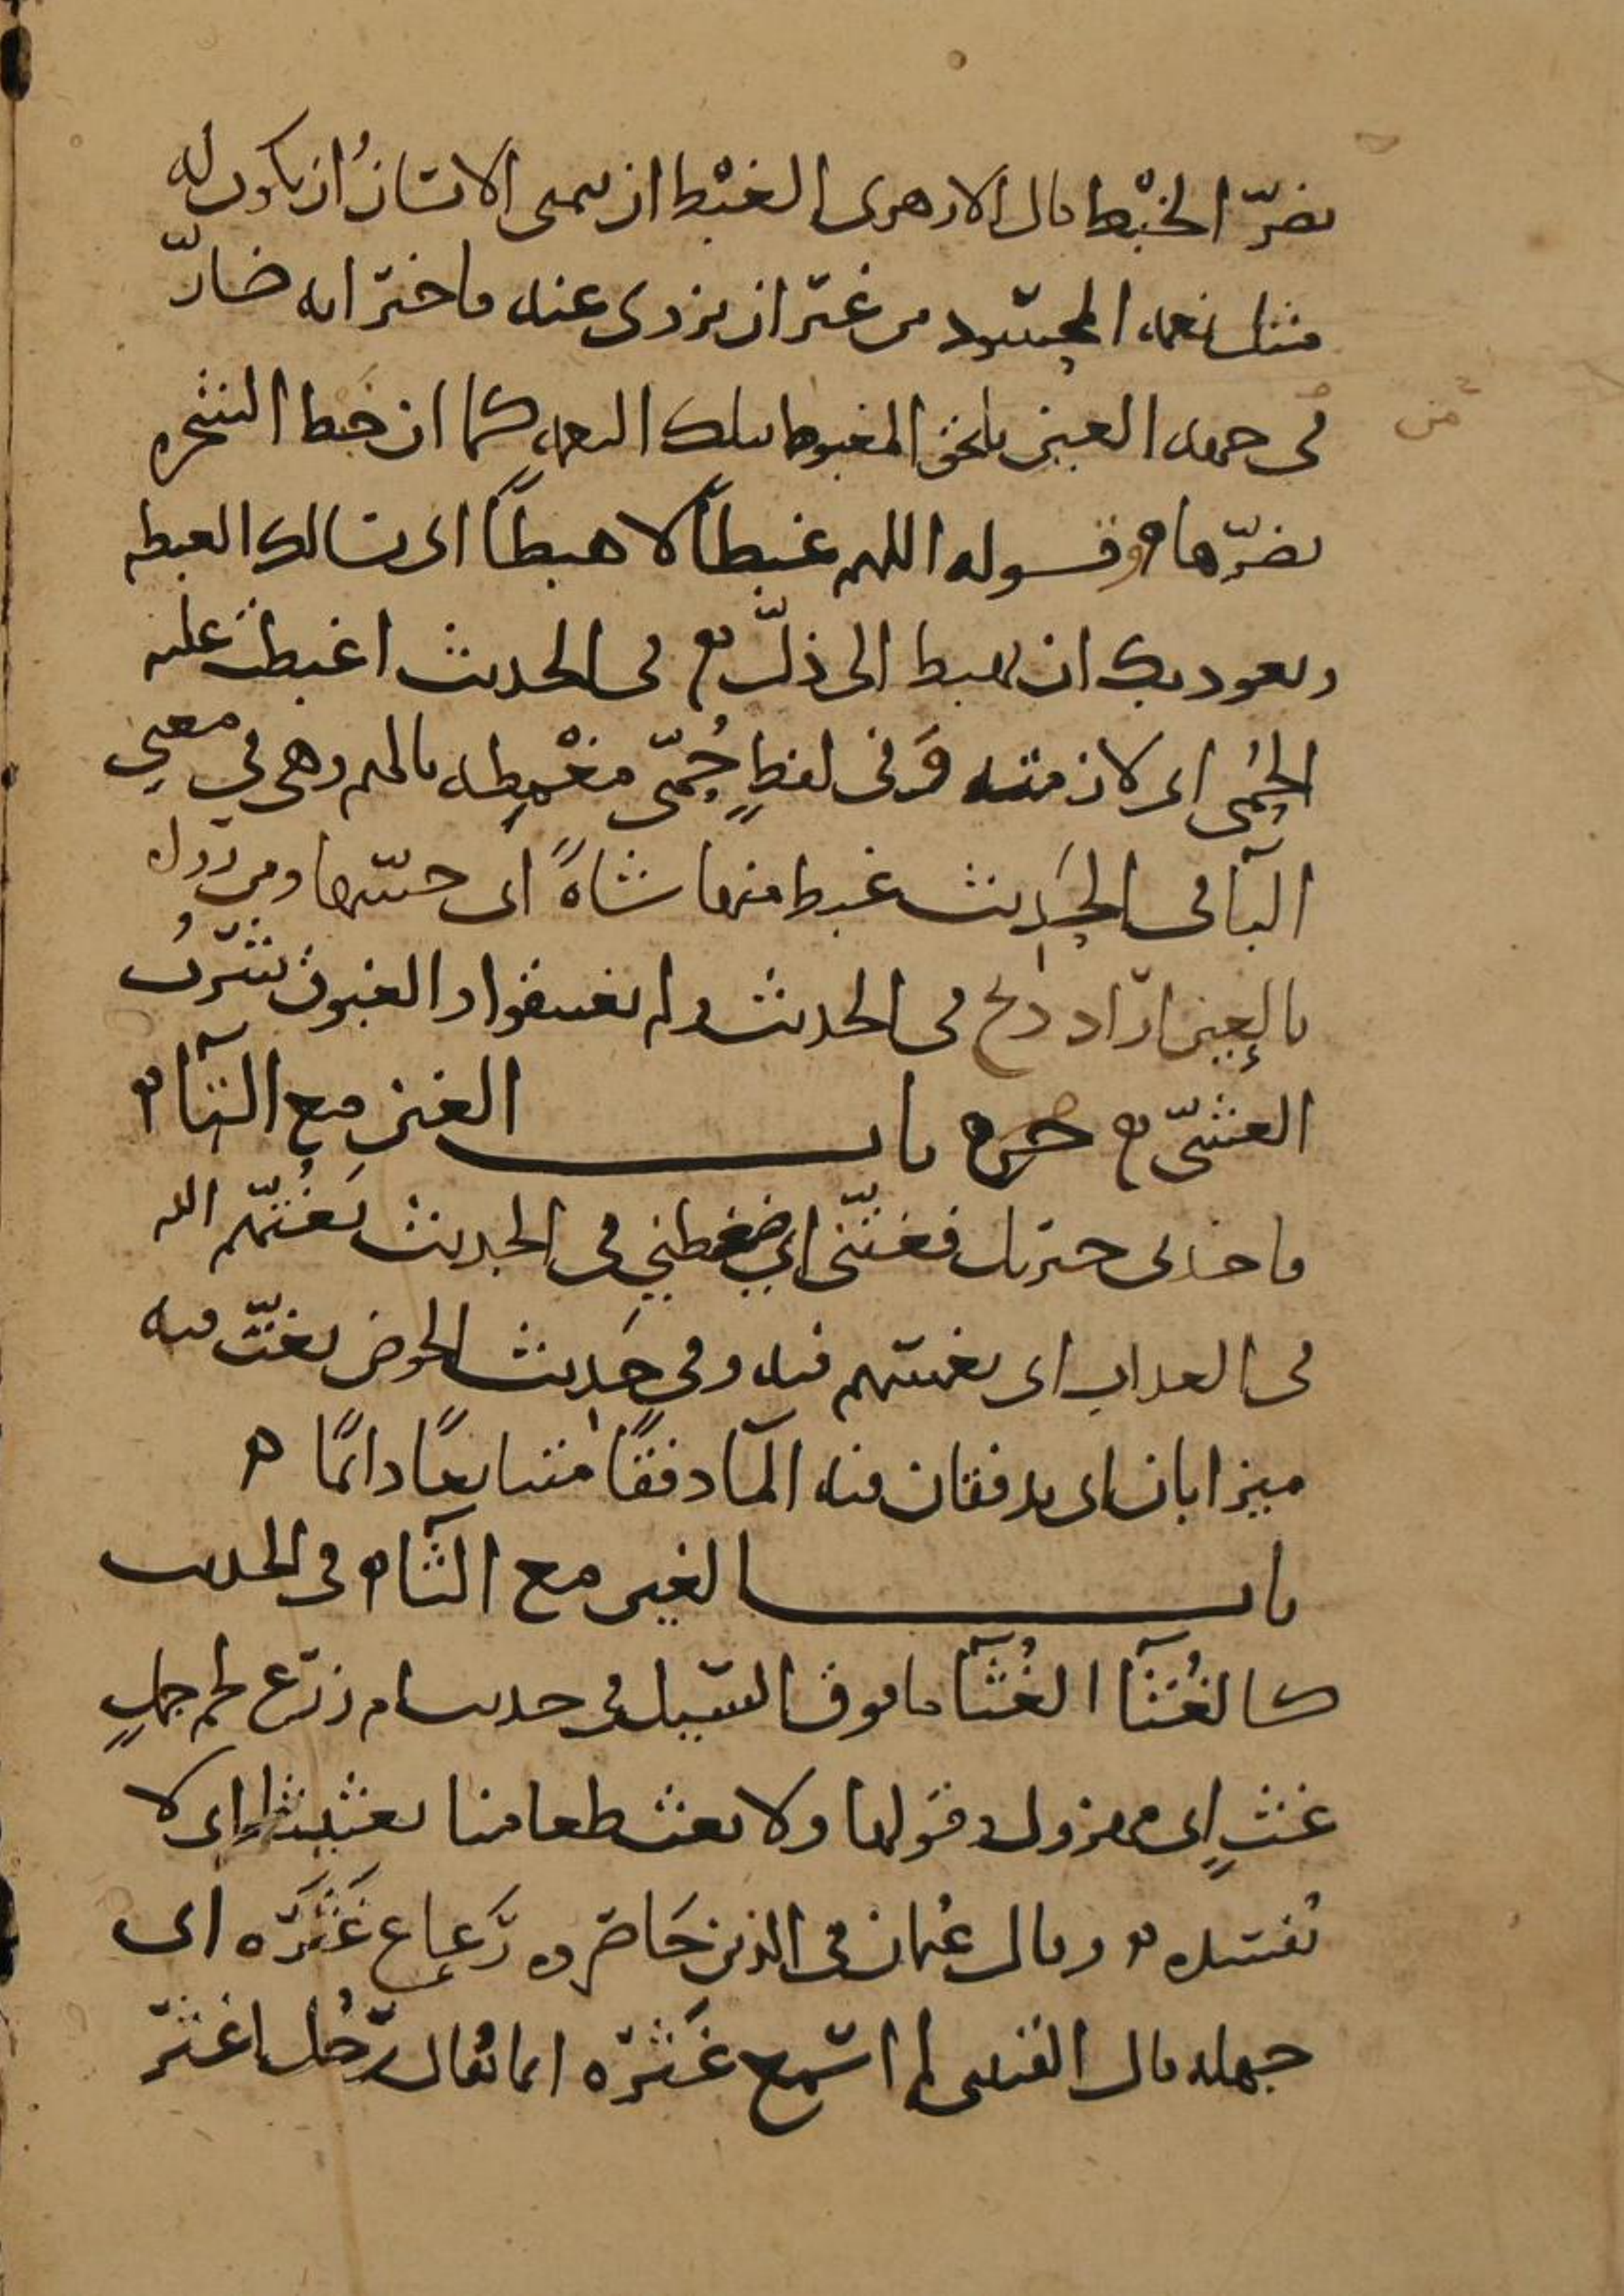 يضرّ الخبْط قال الازهرى الغبْط ان يتمنى الانسانُ ان يكون له
مثل نعمه المحسود من غير ان يزوى عنه فاخبر انه ضارّ
فى حموه العين يلحق المغبوط بتلك النعمه كما ان خبط الشجر
يضرّها وقوله اللهم غبطاً لا هبطاً اى نسالك الغبطه
ونعوذ بك ان نهبط الى ذلّ فى الحديث اغبطت عليه
الحُمى اى لازمته وَفى لفظٍ حُمّى مغْمِطه بالميم وهى فى معنى
البآ فى الحديث غبط منها شاةً اى حبسها ومن روا
بالعين اراد ذبح فى الحديث ولم يغتبقوا والغبوق شُرْبُ
العشىّ باب الغين مع التآ
فاخذنى جبريل فغتّنى اى ضغطنى فى الحديث يَغُتّهم الله
فى العذاب اى يغمسهم فيه وفى حديث الحوض يغتّ فيه
ميزابان اى يدفقان فيه المآ دفقاً متتابعاً دائماً
باب الغين مع الثآ فى الحديث
كالغُثآ الغُثآ ما فوق السّيل فى حديث ام زرع لحم جملٍ
غثٍ اى مهزول وقولها ولا تغث طعامنا تغثيثا اى لا
تُفسده وقال عثمان فى الذين حَاصَروه رَعاع غَثَرَه اى
جهله قال القتيبى لم اسمع غَثَرَه انما يُقال رَجُل اغثر